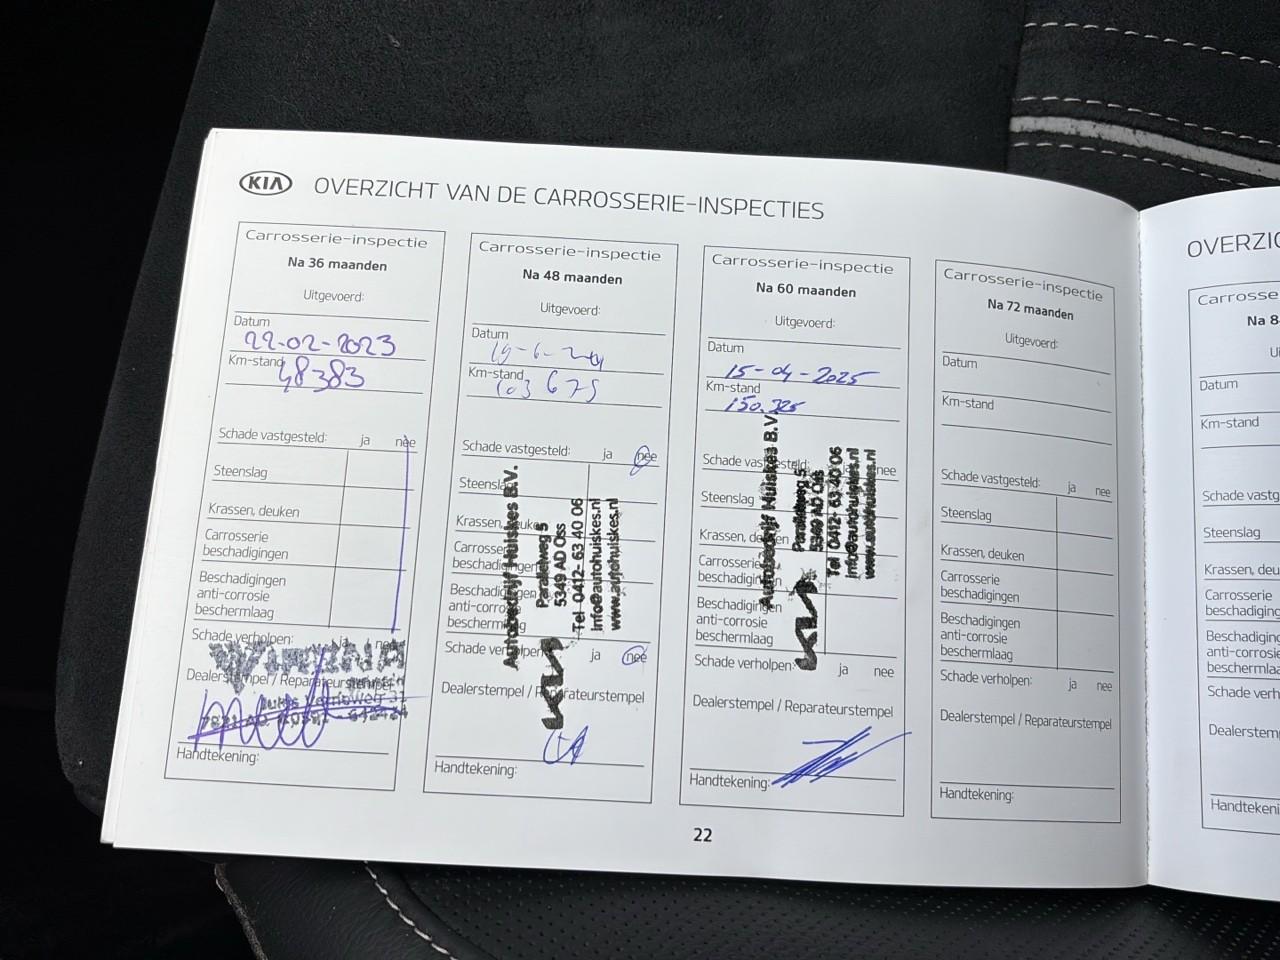 KIA OVERZICHT VAN DE CARROSSERIE-INSPECTIES
Carrosserie-inspectie
Na 36 maanden
Uitgevoerd:
Datum
22-02-2023
Km-stand
48383
Schade vastgesteld: ja nee
Steenslag
Krassen, deuken
Carrosserie
beschadigingen
Beschadigingen
anti-corrosie
beschermlaag
Schade verholpen: ja nee
Dealerstempel / Reparateurstempel
Handtekening:
Carrosserie-inspectie
Na 48 maanden
Uitgevoerd:
Datum
Km-stand
103 675
Schade vastgesteld: ja nee
Steenslag
Krassen, deuken
Carrosserie
beschadigingen
Beschadigingen
anti-corrosie
beschermlaag
Schade verholpen: ja nee
Dealerstempel / Reparateurstempel
Autobedrijf Huiskes B.V.
Paralelweg 5
5349 AD Oss
Tel 0412- 63 40 06
info@autohuiskes.nl
www.autohuiskes.nl
KIA
Handtekening:
Carrosserie-inspectie
Na 60 maanden
Uitgevoerd:
Datum
15-04-2025
Km-stand
150.325
Schade vastgesteld: ja nee
Steenslag
Krassen, deuken
Carrosserie
beschadigingen
Beschadigingen
anti-corrosie
beschermlaag
Schade verholpen: ja nee
Dealerstempel / Reparateurstempel
Autobedrijf Huiskes B.V.
Paralelweg 5
5349 AD Oss
Tel 0412- 63 40 06
info@autohuiskes.nl
www.autohuiskes.nl
KIA
Handtekening:
Carrosserie-inspectie
Na 72 maanden
Uitgevoerd:
Datum
Km-stand
Schade vastgesteld: ja nee
Steenslag
Krassen, deuken
Carrosserie
beschadigingen
Beschadigingen
anti-corrosie
beschermlaag
Schade verholpen: ja nee
Dealerstempel / Reparateurstempel
Handtekening:
22
OVERZIC
Carrosse
Na 8
Ui
Datum
Km-stand
Schade vastg
Steenslag
Krassen, deu
Carrosserie
beschadiging
Beschadiging
anti-corrosie
beschermlaa
Schade verh
Dealerstem
Handtekeni